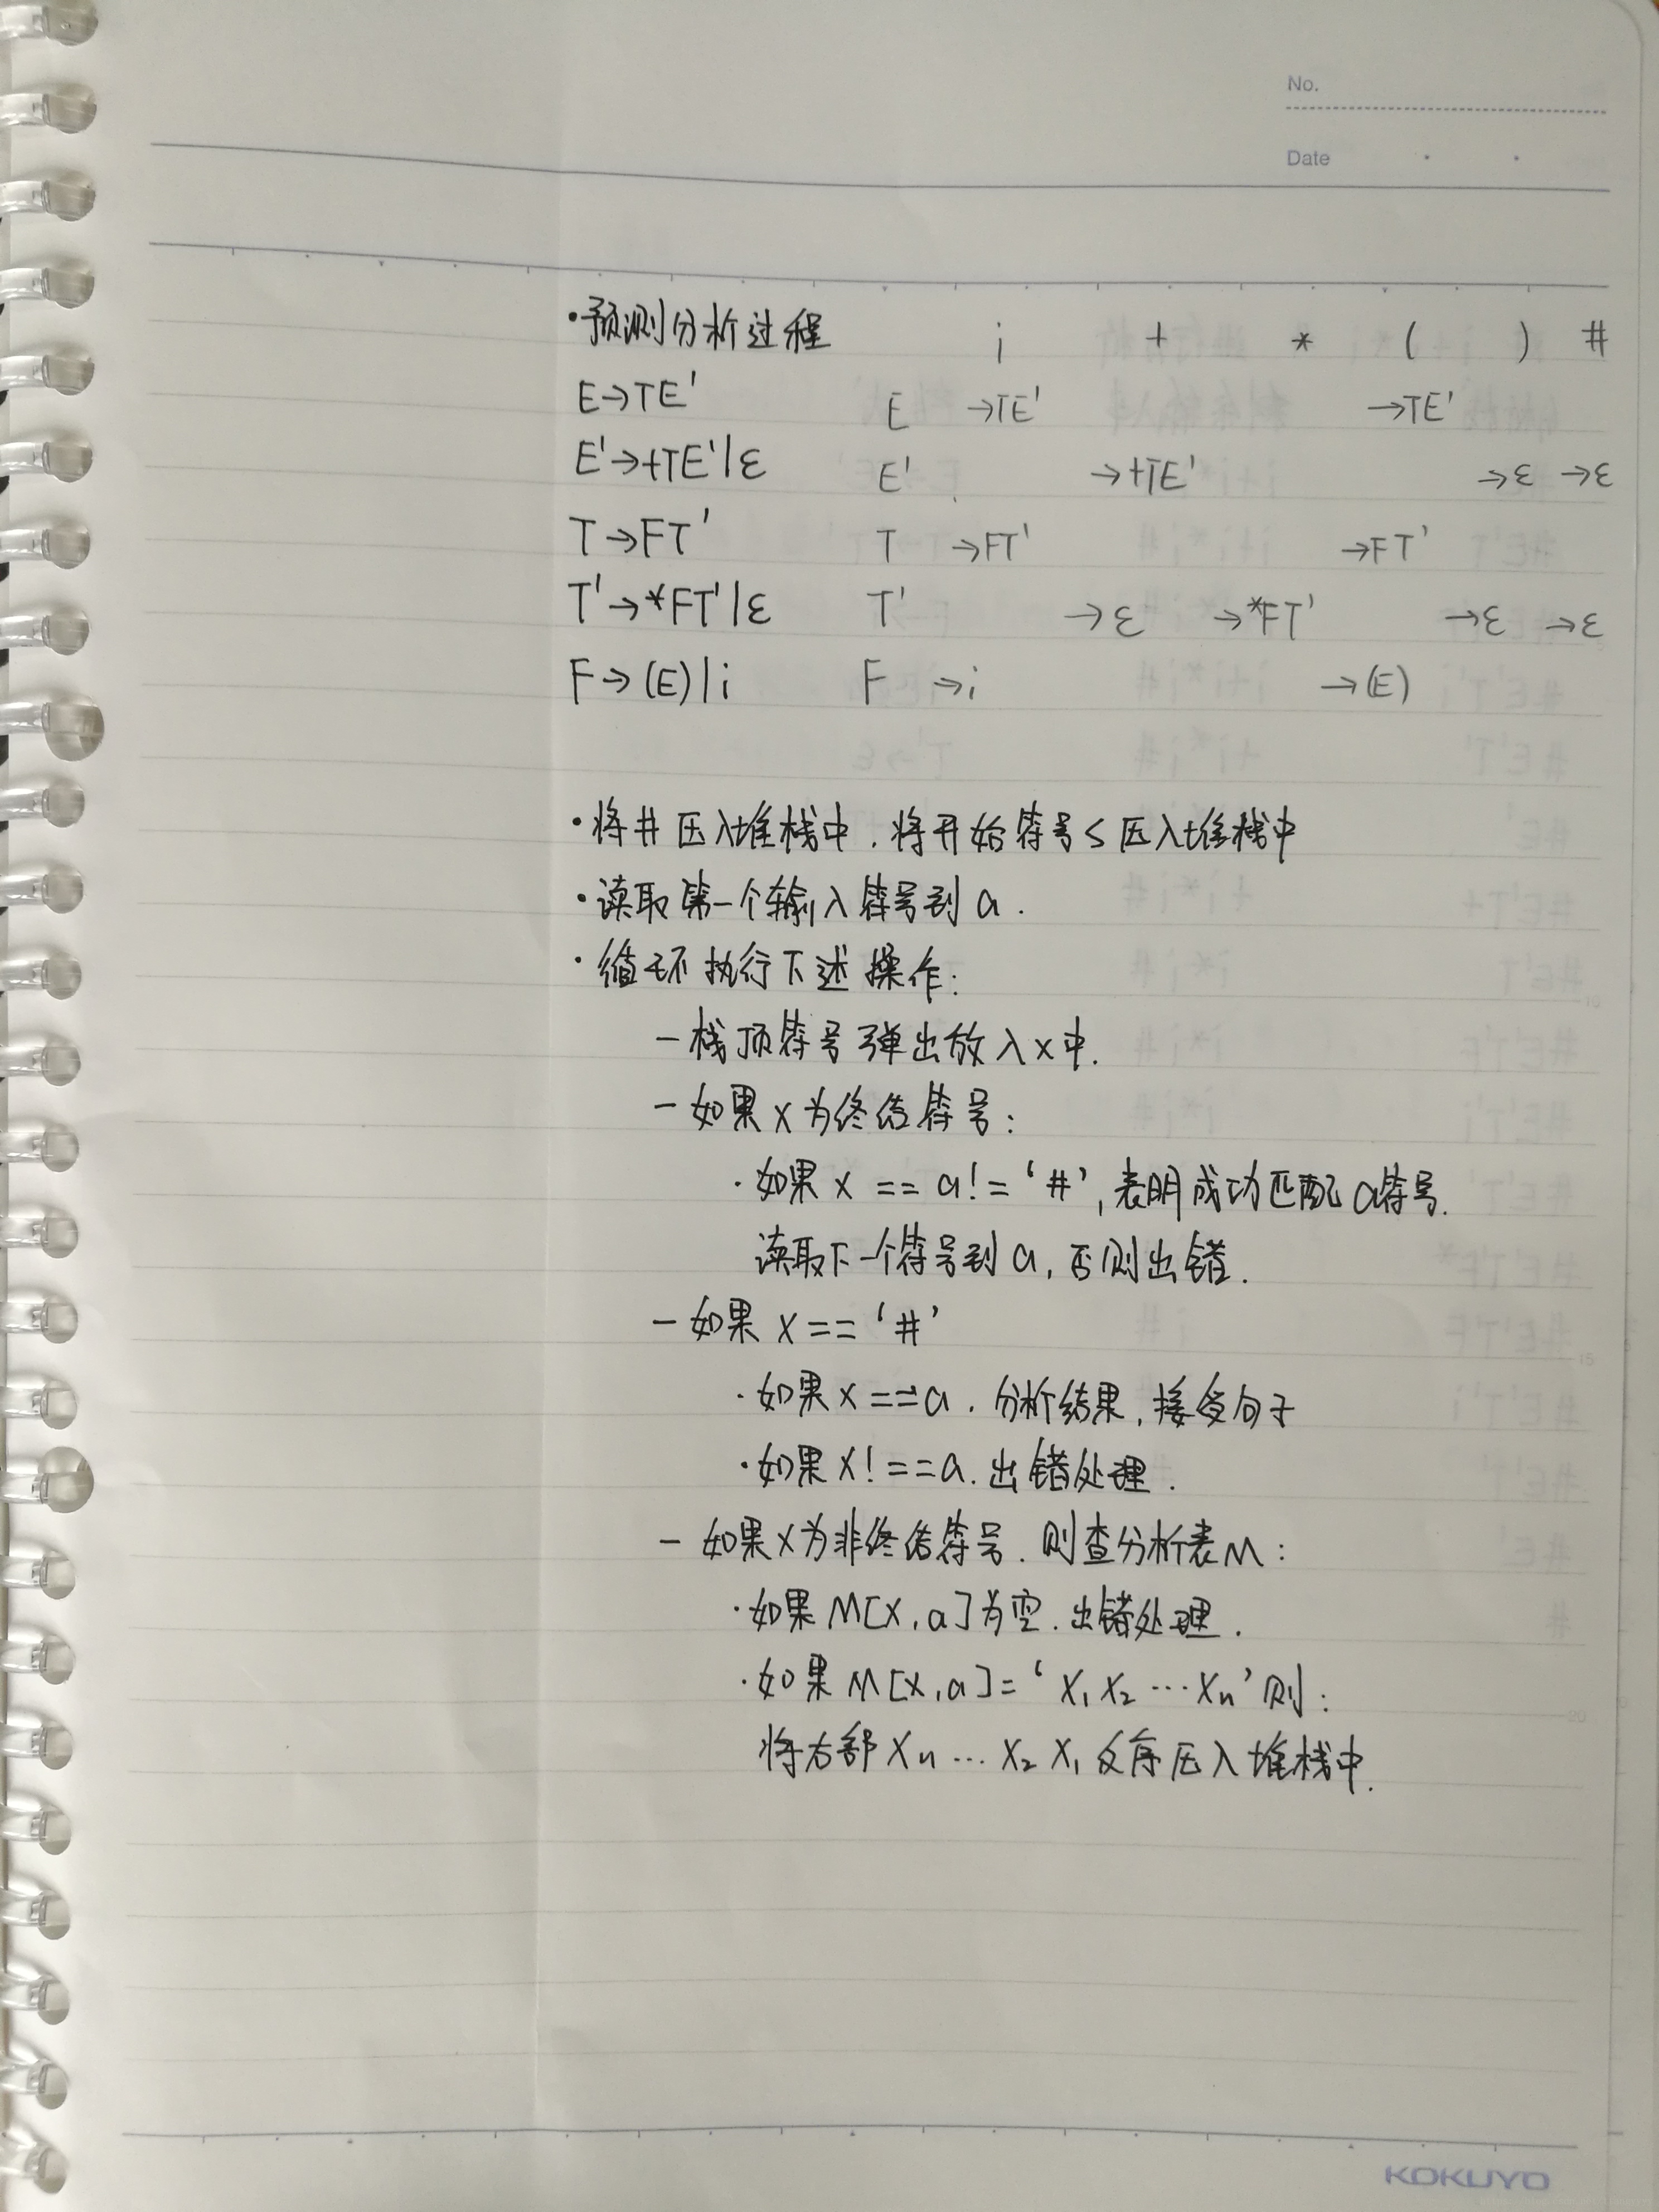 No.
Date
·预测分析过程 i + * ( ) #
E→TE' E →TE' →TE'
E'→+TE'|ε E' →+TE' →ε →ε
T→FT' T →FT' →FT'
T'→*FT'|ε T' →ε →*FT' →ε →ε
F→(E)|i F →i →(E)
·将#压入堆栈中.将开始符号S压入堆栈中
·读取第一个输入符号到a.
·循环执行下述操作:
-栈顶符号弹出放入x中.
-如果x为终结符号:
·如果x == a! = '#',表明成功匹配a符号.
读取下一个符号到a,否则出错.
-如果x == '#'
·如果x == a.分析结果,接受句子
·如果x! == a.出错处理.
-如果x为非终结符号.则查分析表M:
·如果M[x,a]为空.出错处理.
·如果M[x,a]='X₁X₂…Xn'则:
将右部Xn…X₂X₁反序压入堆栈中.
KOKUYO